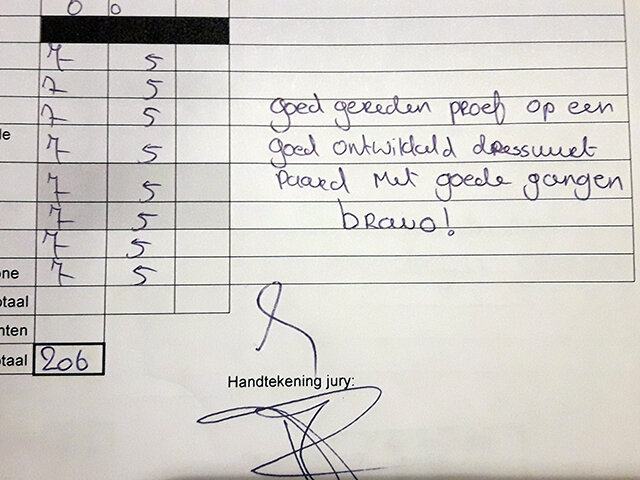 0 0
7 5
7 5
7 5
goed gereden proef op een
de
7 5
goed ontwikkeld dressuur
7 5
paard met goede gangen
7 5
bravo!
7 5
one 7 5
otaal
nten
otaal 206
Handtekening jury: